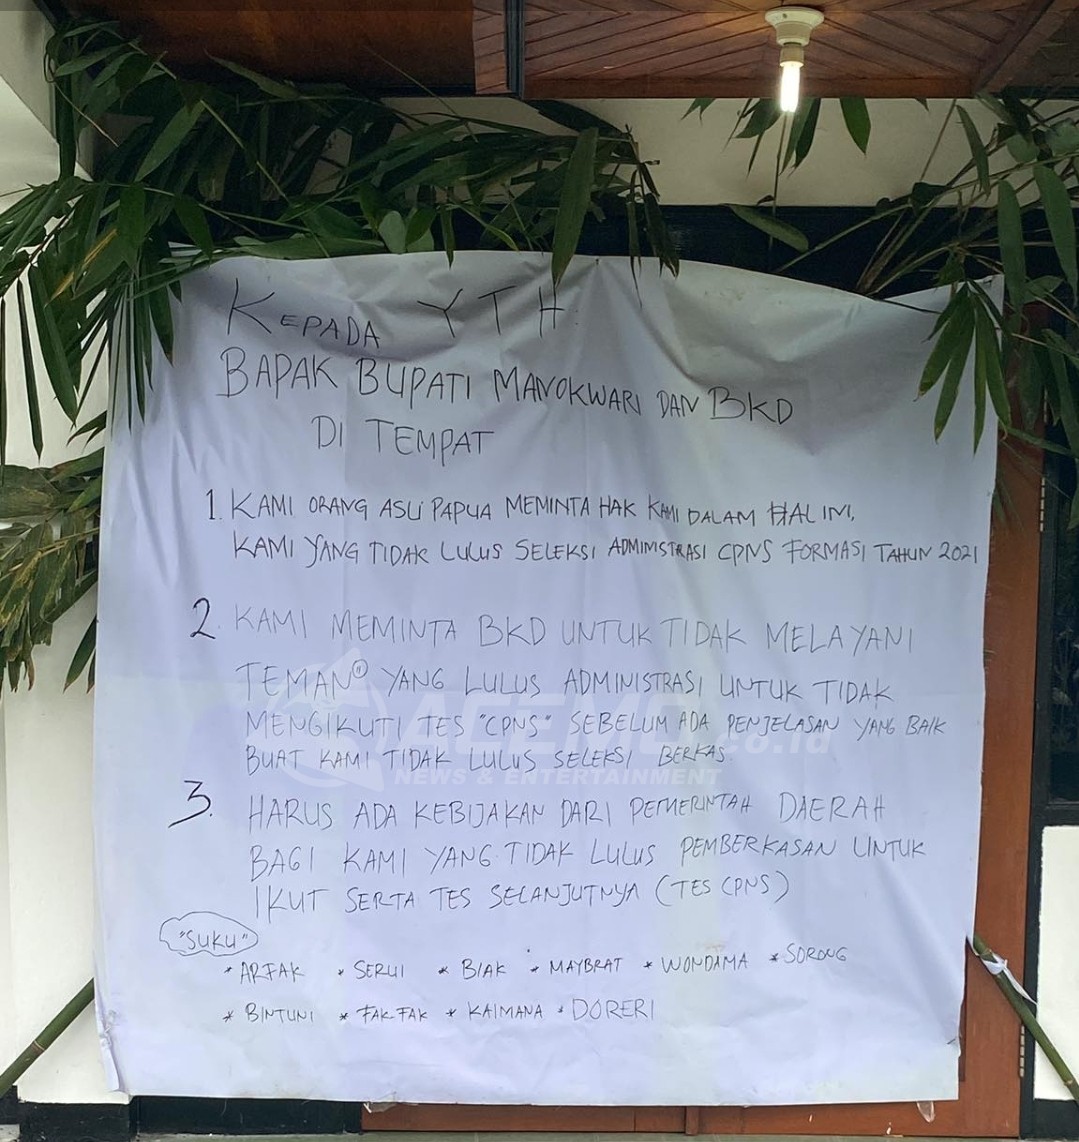 KEPADA YTH.
BAPAK BUPATI MANOKWARI DAN BKD
DI TEMPAT
1. KAMI ORANG ASLI PAPUA MEMINTA HAK KAMI DALAM HAL INI,
KAMI YANG TIDAK LULUS SELEKSI ADMINISTRASI CPNS FORMASI TAHUN 2021
2. KAMI MEMINTA BKD UNTUK TIDAK MELAYANI
TEMAN" YANG LULUS ADMINISTRASI UNTUK TIDAK
MENGIKUTI TES "CPNS" SEBELUM ADA PENJELASAN YANG BAIK
BUAT KAMI TIDAK LULUS SELEKSI BERKAS.
ACEMO.co.id
NEWS & ENTERTAINMENT
3. HARUS ADA KEBIJAKAN DARI PEMERINTAH DAERAH
BAGI KAMI YANG TIDAK LULUS PEMBERKASAN UNTUK
IKUT SERTA TES SELANJUTNYA (TES CPNS)
"SUKU"
* ARFAK * SERUI * BIAK * MAYBRAT * WONDAMA * SORONG
* BINTUNI * FAK FAK * KAIMANA * DORERI